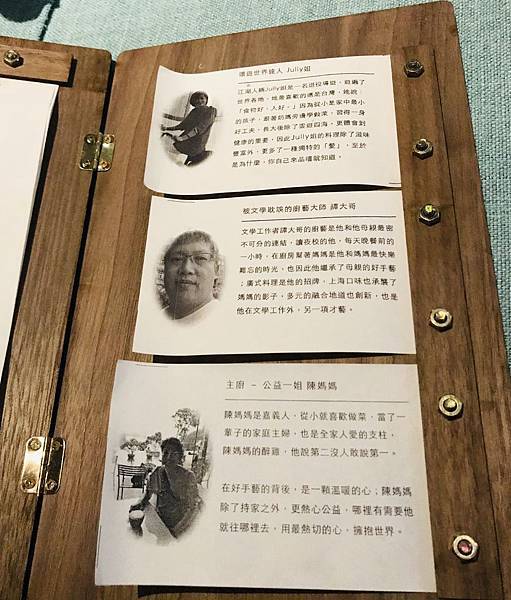 環遊世界達人 Jully姐
江湖人稱Jully姐是一名退役導遊，遊遍了
世界各地，她最喜歡的還是台灣，她說：
「食物好、人好。」因為從小是家中最小
的孩子，跟著奶媽旁邊學做菜，習得一身
好工夫。長大後除了雲遊四海，更體會到
健康的重要，因此Jully姐的料理除了滋味
豐富外，更多了一種獨特的「愛」，至於
是為什麼，你自己來品嚐就知道。
被文學耽誤的廚藝大師 譚大哥
文學工作者譚大哥的廚藝是他和他母親最密
不可分的連結，讀夜校的他，每天晚餐前的
一小時，在廚房幫著媽媽是他和媽媽最快樂
難忘的時光，也因此他繼承了母親的好手藝
；廣式料理是他的招牌，上海口味也承襲了
媽媽的影子，多元的融合地道也創新，也是
他在文學工作外，另一項才藝。
主廚 – 公益一姐 陳媽媽
陳媽媽是嘉義人，從小就喜歡做菜，當了一
輩子的家庭主婦，也是全家人愛的支柱，
陳媽媽的醉雞，他說第二沒人敢說第一。
在好手藝的背後，是一顆溫暖的心；陳媽媽
除了持家之外，更熱心公益，哪裡有需要他
就往哪裡去，用最熱切的心，擁抱世界。